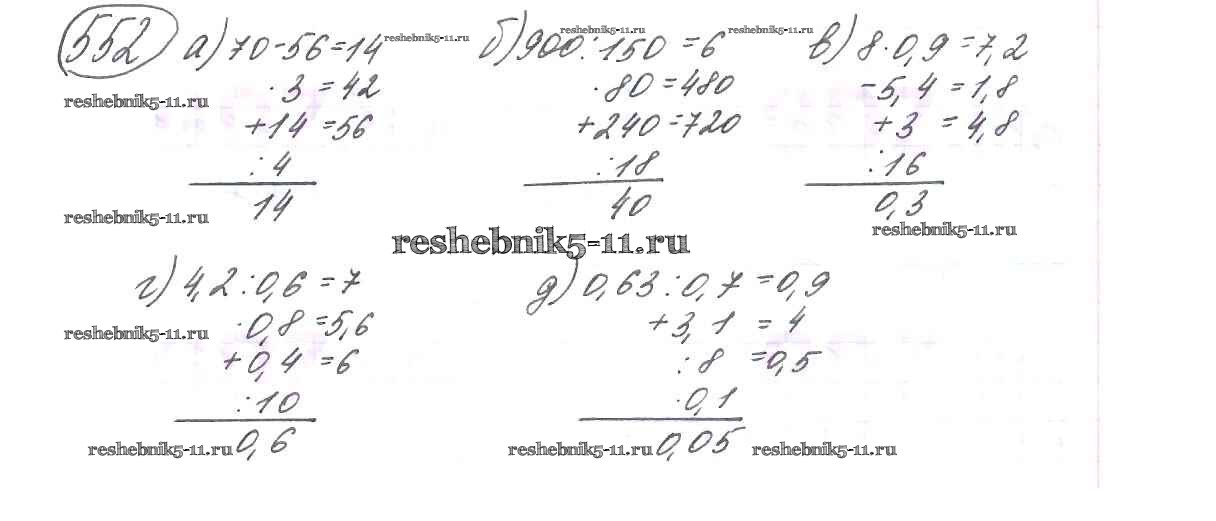 552 а) 70-56=14 reshebnik5-11.ru
reshebnik5-11.ru
·3=42
+14=56
:4
14
reshebnik5-11.ru
б) 900:150=6 reshebnik5-11.ru
reshebnik5-11.ru
·80=480
+240=720
:18
40
в) 8·0,9=7,2
-5,4=1,8
+3=4,8
:16
0,3
reshebnik5-11.ru
reshebnik5-11.ru
г) 4,2:0,6=7
reshebnik5-11.ru ·0,8=5,6
+0,4=6
:10
reshebnik5-11.ru 0,6
д) 0,63:0,7=0,9
+3,1=4
:8=0,5
·0,1
reshebnik5-11.ru 0,05 reshebnik5-11.ru